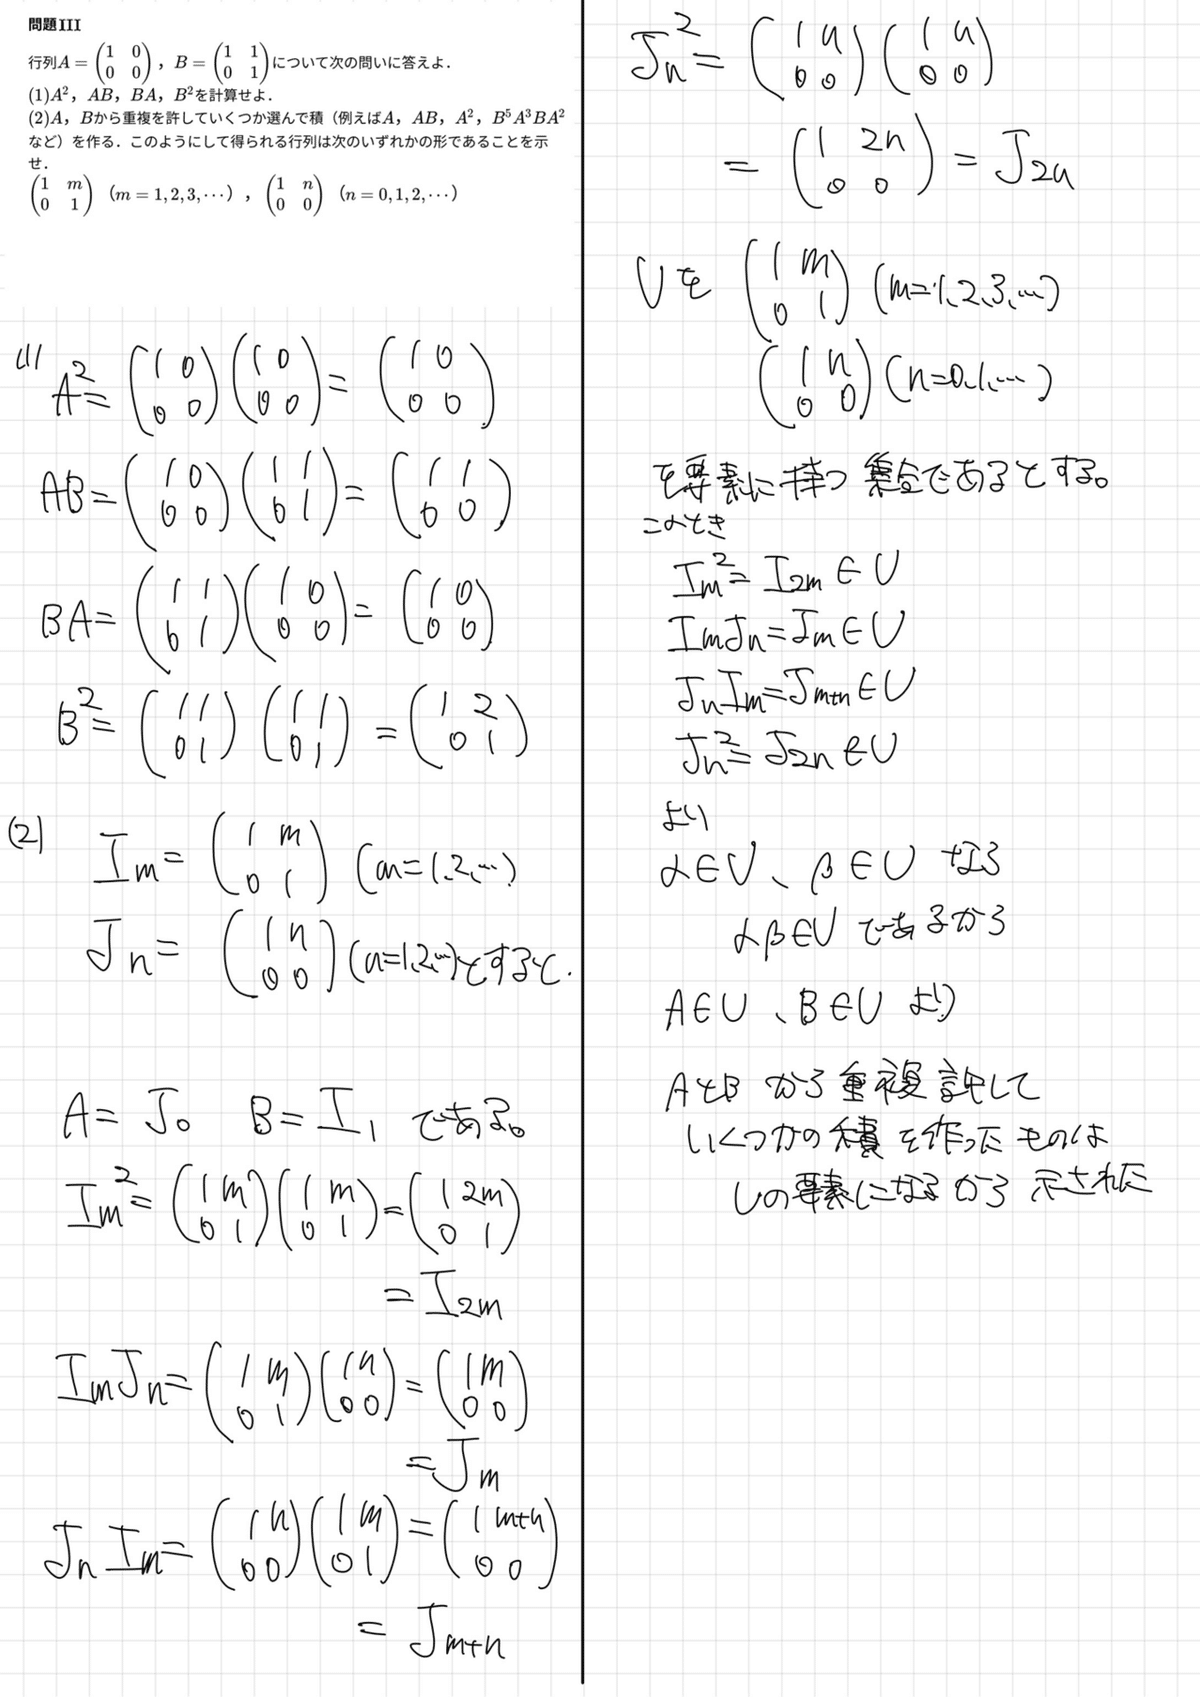 問題III
行列A = \begin{pmatrix} 1 & 0 \\ 0 & 0 \end{pmatrix}，B = \begin{pmatrix} 1 & 1 \\ 0 & 1 \end{pmatrix}について次の問いに答えよ．
(1)A²，AB，BA，B²を計算せよ．
(2)A，Bから重複を許していくつか選んで積（例えばA，AB，A²，B⁵A³BA²
など）を作る．このようにして得られる行列は次のいずれかの形であることを示
せ．
\begin{pmatrix} 1 & m \\ 0 & 1 \end{pmatrix}（m = 1, 2, 3, ⋯），\begin{pmatrix} 1 & n \\ 0 & 0 \end{pmatrix}（n = 0, 1, 2, ⋯）
(1) A² = \begin{pmatrix} 1 & 0 \\ 0 & 0 \end{pmatrix}\begin{pmatrix} 1 & 0 \\ 0 & 0 \end{pmatrix} = \begin{pmatrix} 1 & 0 \\ 0 & 0 \end{pmatrix}
AB = \begin{pmatrix} 1 & 0 \\ 0 & 0 \end{pmatrix}\begin{pmatrix} 1 & 1 \\ 0 & 1 \end{pmatrix} = \begin{pmatrix} 1 & 1 \\ 0 & 0 \end{pmatrix}
BA = \begin{pmatrix} 1 & 1 \\ 0 & 1 \end{pmatrix}\begin{pmatrix} 1 & 0 \\ 0 & 0 \end{pmatrix} = \begin{pmatrix} 1 & 0 \\ 0 & 0 \end{pmatrix}
B² = \begin{pmatrix} 1 & 1 \\ 0 & 1 \end{pmatrix}\begin{pmatrix} 1 & 1 \\ 0 & 1 \end{pmatrix} = \begin{pmatrix} 1 & 2 \\ 0 & 1 \end{pmatrix}
(2) I_m = \begin{pmatrix} 1 & m \\ 0 & 1 \end{pmatrix} (m=1,2,…)
J_n = \begin{pmatrix} 1 & n \\ 0 & 0 \end{pmatrix} (n=1,2,…)とすると.
A = J_0 B = I_1 である。
I_m² = \begin{pmatrix} 1 & m \\ 0 & 1 \end{pmatrix}\begin{pmatrix} 1 & m \\ 0 & 1 \end{pmatrix} = \begin{pmatrix} 1 & 2m \\ 0 & 1 \end{pmatrix}
= I_{2m}
I_m J_n = \begin{pmatrix} 1 & m \\ 0 & 1 \end{pmatrix}\begin{pmatrix} 1 & n \\ 0 & 0 \end{pmatrix} = \begin{pmatrix} 1 & m \\ 0 & 0 \end{pmatrix}
= J_m
J_n I_m = \begin{pmatrix} 1 & n \\ 0 & 0 \end{pmatrix}\begin{pmatrix} 1 & m \\ 0 & 1 \end{pmatrix} = \begin{pmatrix} 1 & m+n \\ 0 & 0 \end{pmatrix}
= J_{m+n}
J_n² = \begin{pmatrix} 1 & n \\ 0 & 0 \end{pmatrix}\begin{pmatrix} 1 & n \\ 0 & 0 \end{pmatrix}
= \begin{pmatrix} 1 & 2n \\ 0 & 0 \end{pmatrix} = J_{2n}
Uを \begin{pmatrix} 1 & m \\ 0 & 1 \end{pmatrix} (m=1,2,3,…)
\begin{pmatrix} 1 & n \\ 0 & 0 \end{pmatrix} (n=0,1,…)
を要素に持つ集合であるとする。
このとき
I_m² = I_{2m} ∈ U
I_m J_n = J_m ∈ U
J_n I_m = J_{m+n} ∈ U
J_n² = J_{2n} ∈ U
より
α∈U、β∈U なら
αβ∈U であるから
A∈U、B∈U より
AとB から重複許して
いくつかの積を作ったものは
Uの要素になるから示された